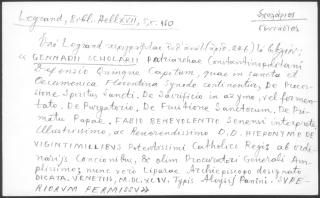 Legrand, Bibl. Hell XVII, Σελ. 150
« GENNADII SCHOLARII Patriarchae Constantinopolitani
Expensio Quinque Capitum, quae in sancta et
Oecumenica Florentina Synodo continentur, De Proces-
sione Spiritus Sancti, De Sacrificio in azymo, vel fermen-
tato, De Purgatorio, De Fruitione Sanctorum, De Pri-
matu Papae, FABIO BENEVOLENTIO Senensi interprete
Illustrissimo, ac Reverendissimo D.D. HIERONYMO DE
VIGINTIMILLIBUS Potentissimi Catholici Regis ab ordi-
narijs Concionibus, & olim Procuratori Generali Am-
plissimo; nunc vero Liparae Archiepiscopo designato
DICATA. VENETIIS, M.DC.XCIV. Typis Aloysij Pavini. SUPE-
RIORUM PERMISSU »